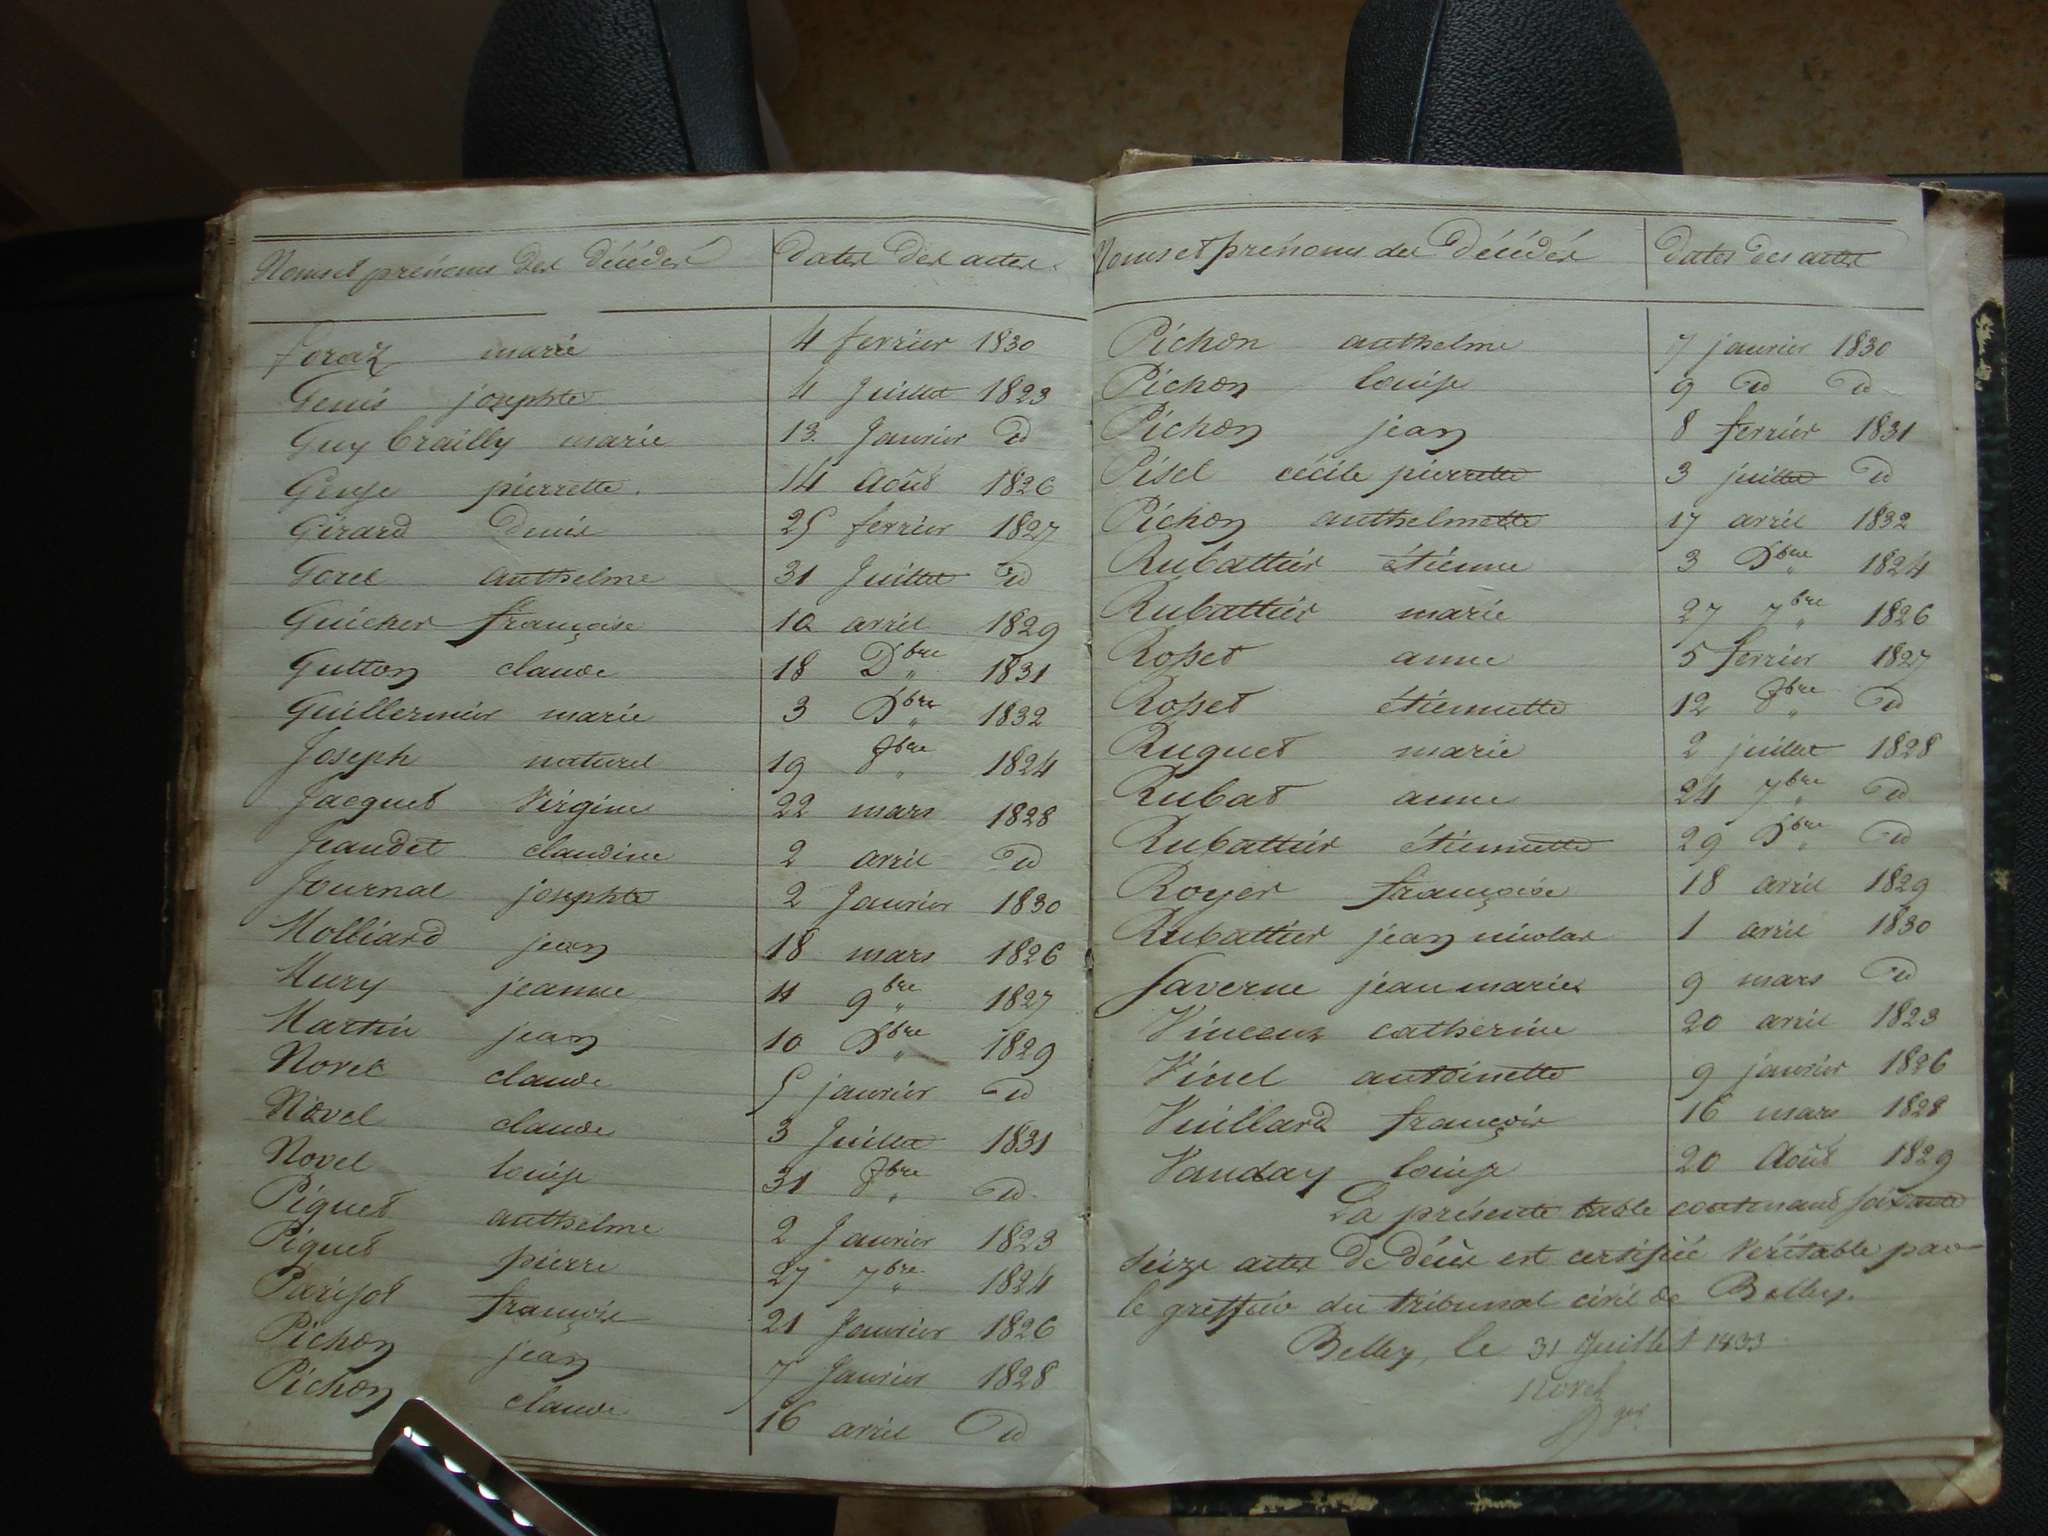 Noms et prénoms des décédés Dates des actes.
foraz marie 4 fevrier 1830
Genis josephte 4 Juillet 1823
Guy Crailly marie 13. Janvier d
Genje pierrette. 14 Août 1826
Girard Denis 25 fevrier 1827
Gorel anthelme 31 Juillet d
Guicher françoise 10 avril 1829
Gutton claude 18 Dbre 1831
Guillermier marie 3 Dbre 1832
Joseph naturel 19 8bre 1824
Jacquet Virginie 22 mars 1828
Jeandet claudine 2 avril d
Journal josephte 2 Janvier 1830
Molliard jean 18 mars 1826
Mury jeanne 11 9bre 1827
Martin jean 10 Dbre 1829
Novel claude 5 janvier d
Novel claude 3 Juillet 1831
Novel louise 31 8bre d
Piquet anthelme 2 Janvier 1823
Piquet pierre 27 7bre 1824
Parisot françois 21 Janvier 1826
Pichon jean 7 Janvier 1828
Pichon claude 16 avril d
Noms et prénoms des Décédés Dates des actes
Pichon anthelme 7 janvier 1830
Pichon louise 9 d d
Pichon jean 8 fevrier 1831
Pisel cécile pierrette 3 juillet d
Pichon anthelmette 17 avril 1832
Rubattier étienne 3 Dbre 1824
Rubattier marie 27 7bre 1826
Rosset anne 5 fevrier 1827
Rosset étiennette 12 8bre d
Ruquet marie 2 juillet 1828
Rubat anne 24 7bre d
Rubattier étiennette 29 Dbre d
Royer françoise 18 avril 1829
Rubattier jean nicolas 1 avril 1830
Saverne jean marie 9 mars d
Vincenz catherine 20 avril 1823
Vinel antoinette 9 janvier 1826
Vuillard françois 16 mars 1828
Vanday louise 20 Août 1829
La présente table contenant soixante
seize actes de décès est certifiée véritable par
le greffier du tribunal civil de Belley.
Belley, le 31 Juillet 1833
Novel
ger